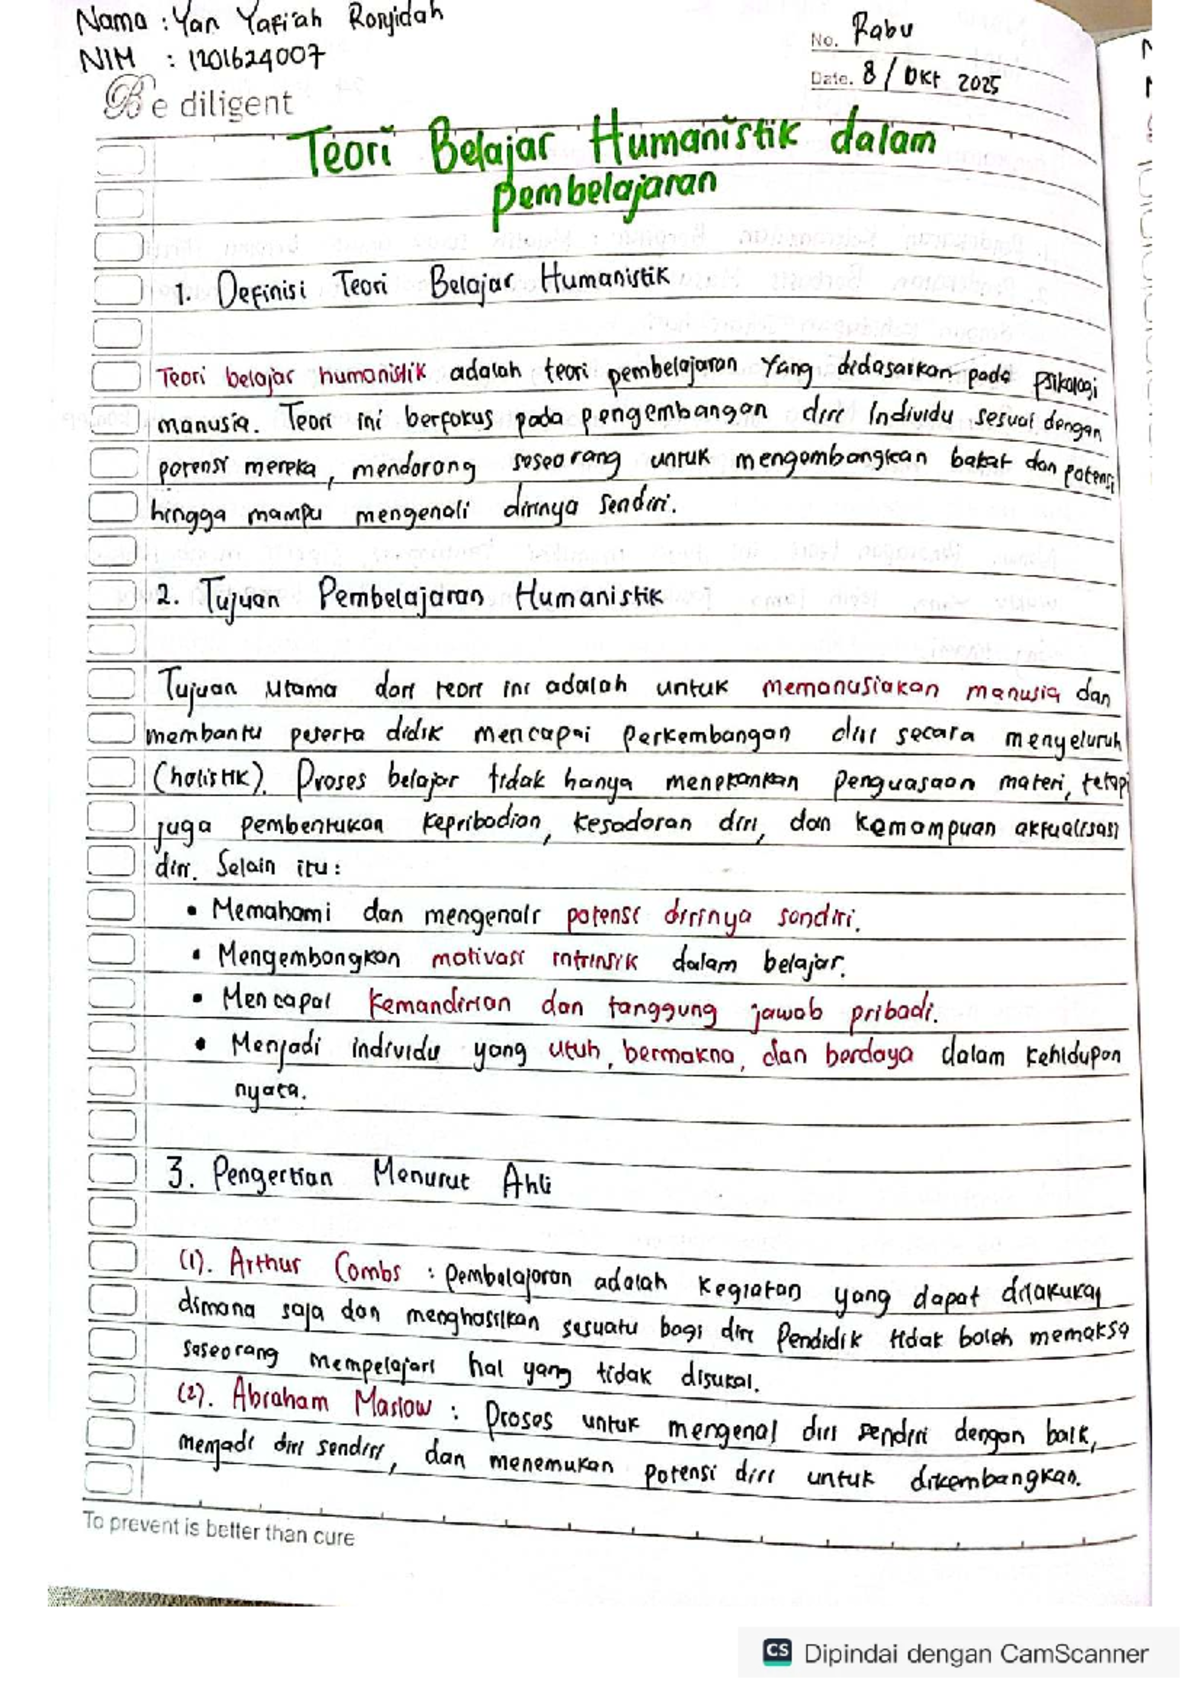 Nama : Yan Yafi'ah Ronjidah
NIM : 1201624007
No. Rabu
Date. 8 / Okt 2025
Be diligent
Teori Belajar Humanistik dalam
pembelajaran
1. Definisi Teori Belajar Humanistik
Teori belajar humanistik adalah teori pembelajaran Yang didasarkan pada psikologi
manusia. Teori ini berfokus pada pengembangan diri Individu sesuai dengan
potensi mereka, mendorong seseorang untuk mengembangkan bakat dan potensi
hingga mampu mengenali dirinya sendiri.
2. Tujuan Pembelajaran Humanistik
Tujuan utama dari teori ini adalah untuk memanusiakan manusia dan
membantu peserta didik mencapai perkembangan diri secara menyeluruh
(holistik). Proses belajar tidak hanya menekankan penguasaan materi, tetapi
juga pembentukan kepribadian, kesadaran diri, dan kemampuan aktualisasi
diri. Selain itu:
• Memahami dan mengenali potensi dirinya sendiri.
• Mengembangkan motivasi intrinsik dalam belajar.
• Mencapai kemandirian dan tanggung jawab pribadi.
• Menjadi individu yang utuh, bermakna, dan berdaya dalam kehidupan
nyata.
3. Pengertian Menurut Ahli
(1). Arthur Combs : pembelajaran adalah kegiatan yang dapat dilakukan
dimana saja dan menghasilkan sesuatu bagi diri Pendidik tidak boleh memaksa
seseorang mempelajari hal yang tidak disukai.
(2). Abraham Maslow : Proses untuk mengenal diri sendiri dengan baik,
menjadi diri sendiri, dan menemukan potensi diri untuk dikembangkan.
To prevent is better than cure
CS Dipindai dengan CamScanner